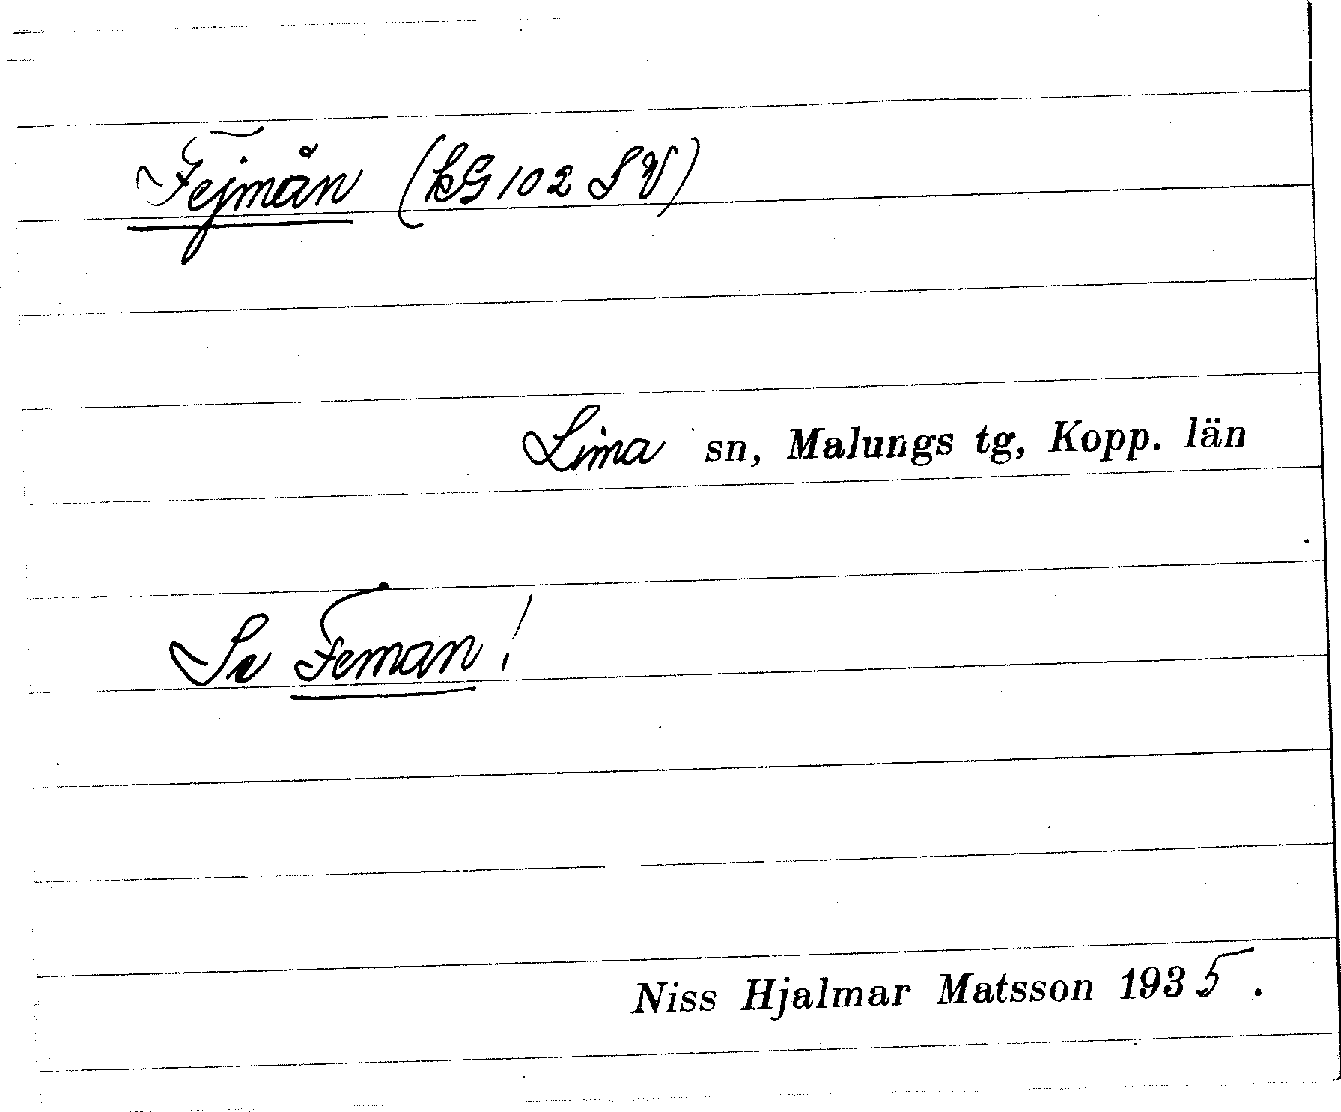 Fejmån (kG 102 SV)
Lima sn, Malungs tg, Kopp. län
Se Feman!
Niss Hjalmar Matsson 1935.